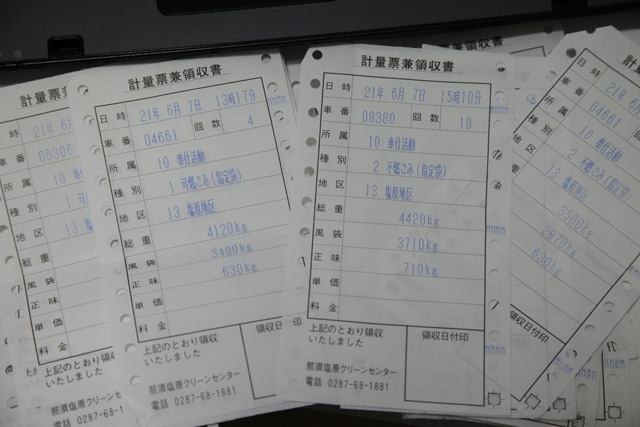 計量票
日時 21年 6月
車番 00306
所属 10 奉
種別 1 可
地区 13 塩
総重
風袋
正味
単価
料金
上記のとおり領収
いたしました
那須塩原クリーンセ
電話 0287-68-1
計量票兼領収書
日時 21年 6月 7日 13時17分
車番 04661 回数 4
所属 10 奉仕活動
種別 1 可燃ごみ(指定袋)
地区 13 塩原地区
総重 4120kg
風袋 3490kg
正味 630kg
単価
料金
上記のとおり領収
いたしました
領収
那須塩原クリーンセンター
電話 0287-68-1881
計量票兼領収書
日時 21年 6月 7日 15時10分
車番 08380 回数 10
所属 10 奉仕活動
種別 2 不燃ごみ(指定袋)
地区 13 塩原地区
総重 4420kg
風袋 3710kg
正味 710kg
単価
料金
上記のとおり領収
いたしました
領収日付印
那須塩原クリーンセンター
電話 0287-68-1881
計量票
日時 21年 6月
車番 04661
所属 10 奉仕活動
種別 2 不燃ごみ(指定袋)
地区 13 塩原地区
総重 3500kg
風袋 2870kg
正味 630kg
単価
料金